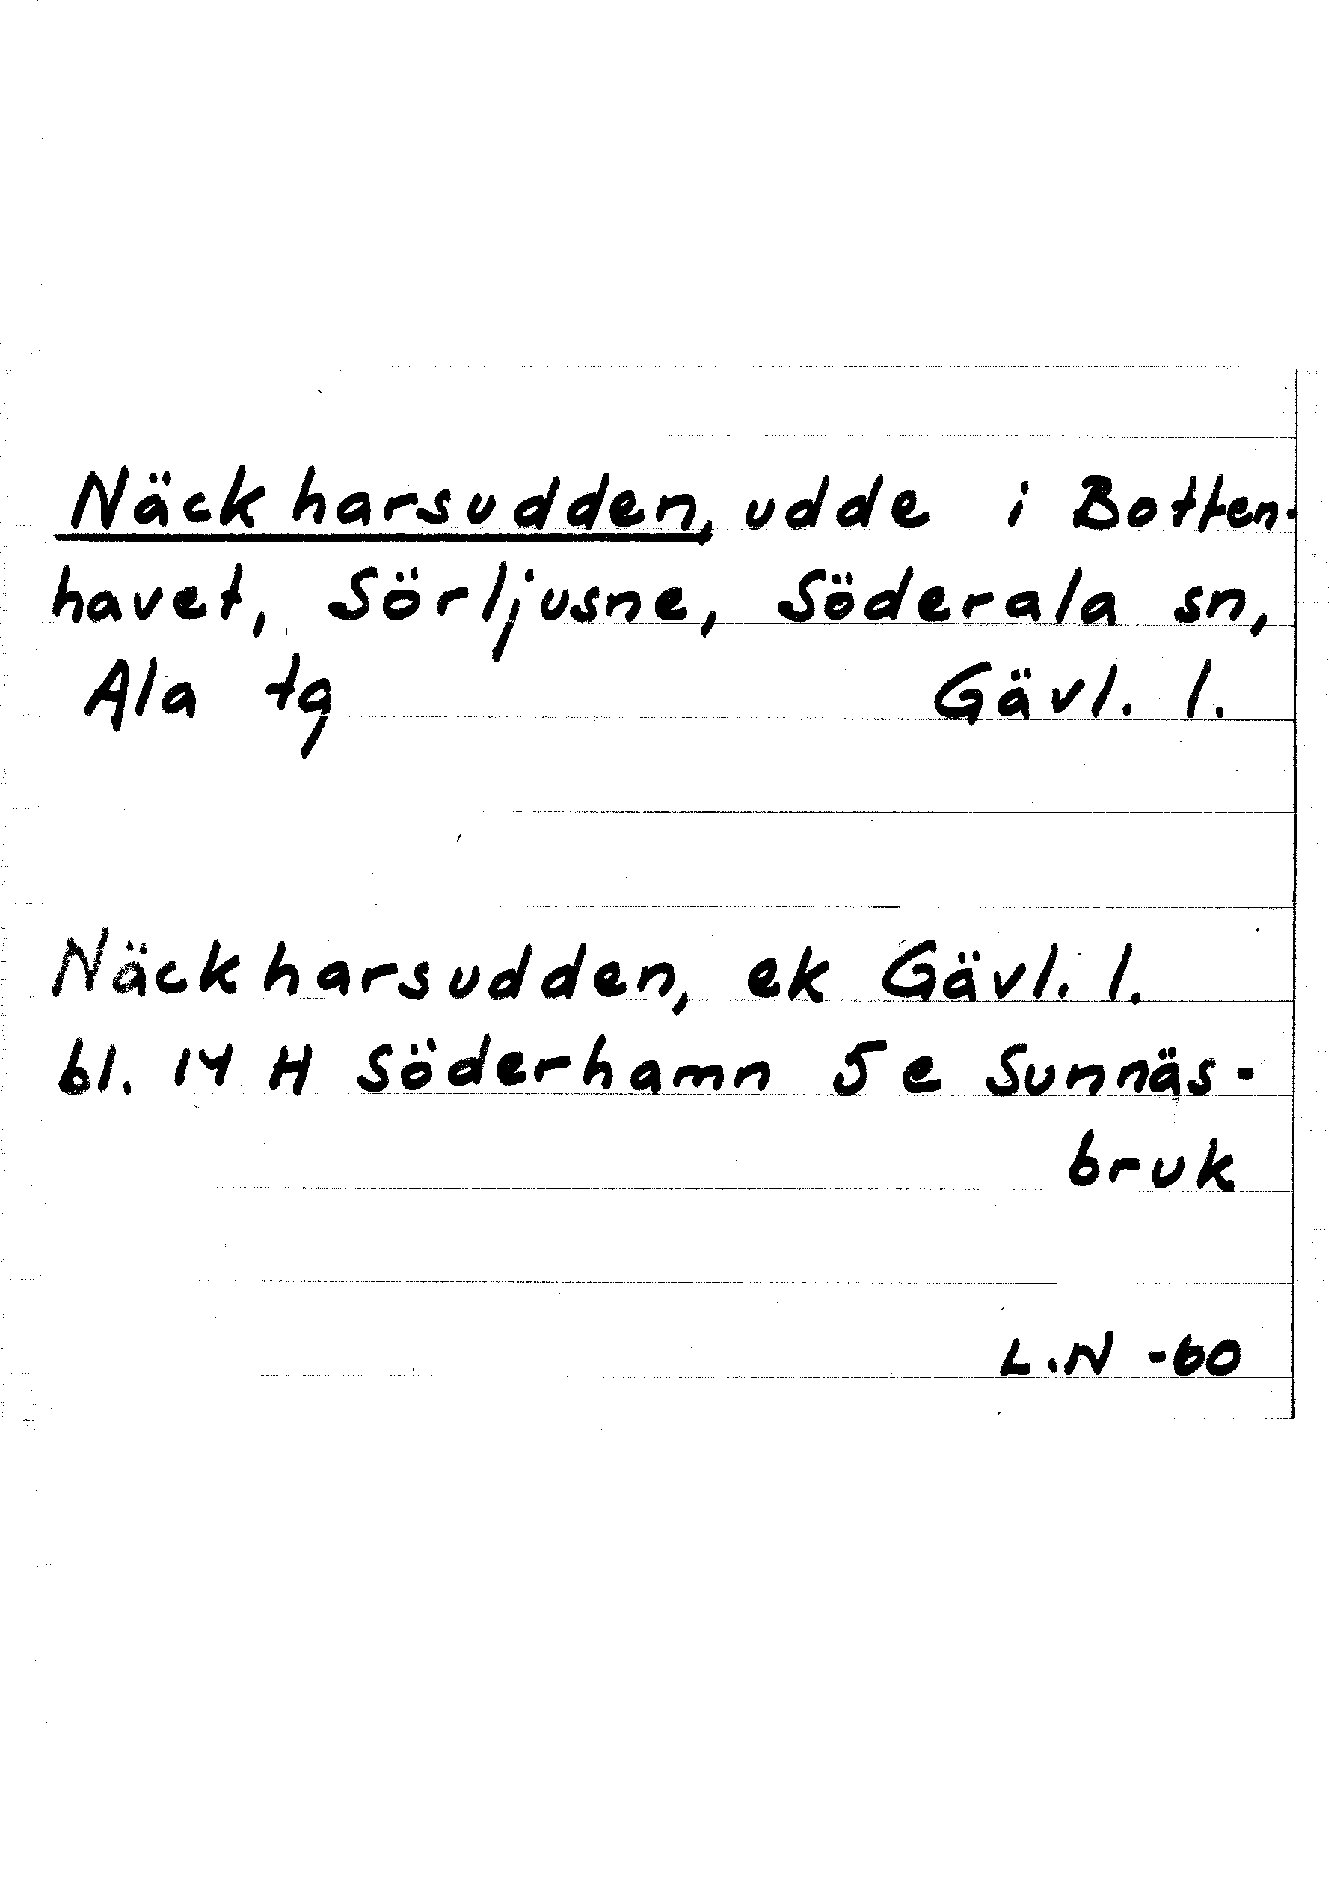 Näckharsudden, udde i Botten-
havet, Sörljusne, Söderala sn,
Ala tg Gävl. l.
Näckharsudden, ek Gävl. l.
bl. 14 H Söderhamn 5 e Sunnäs-
bruk
L.N -60